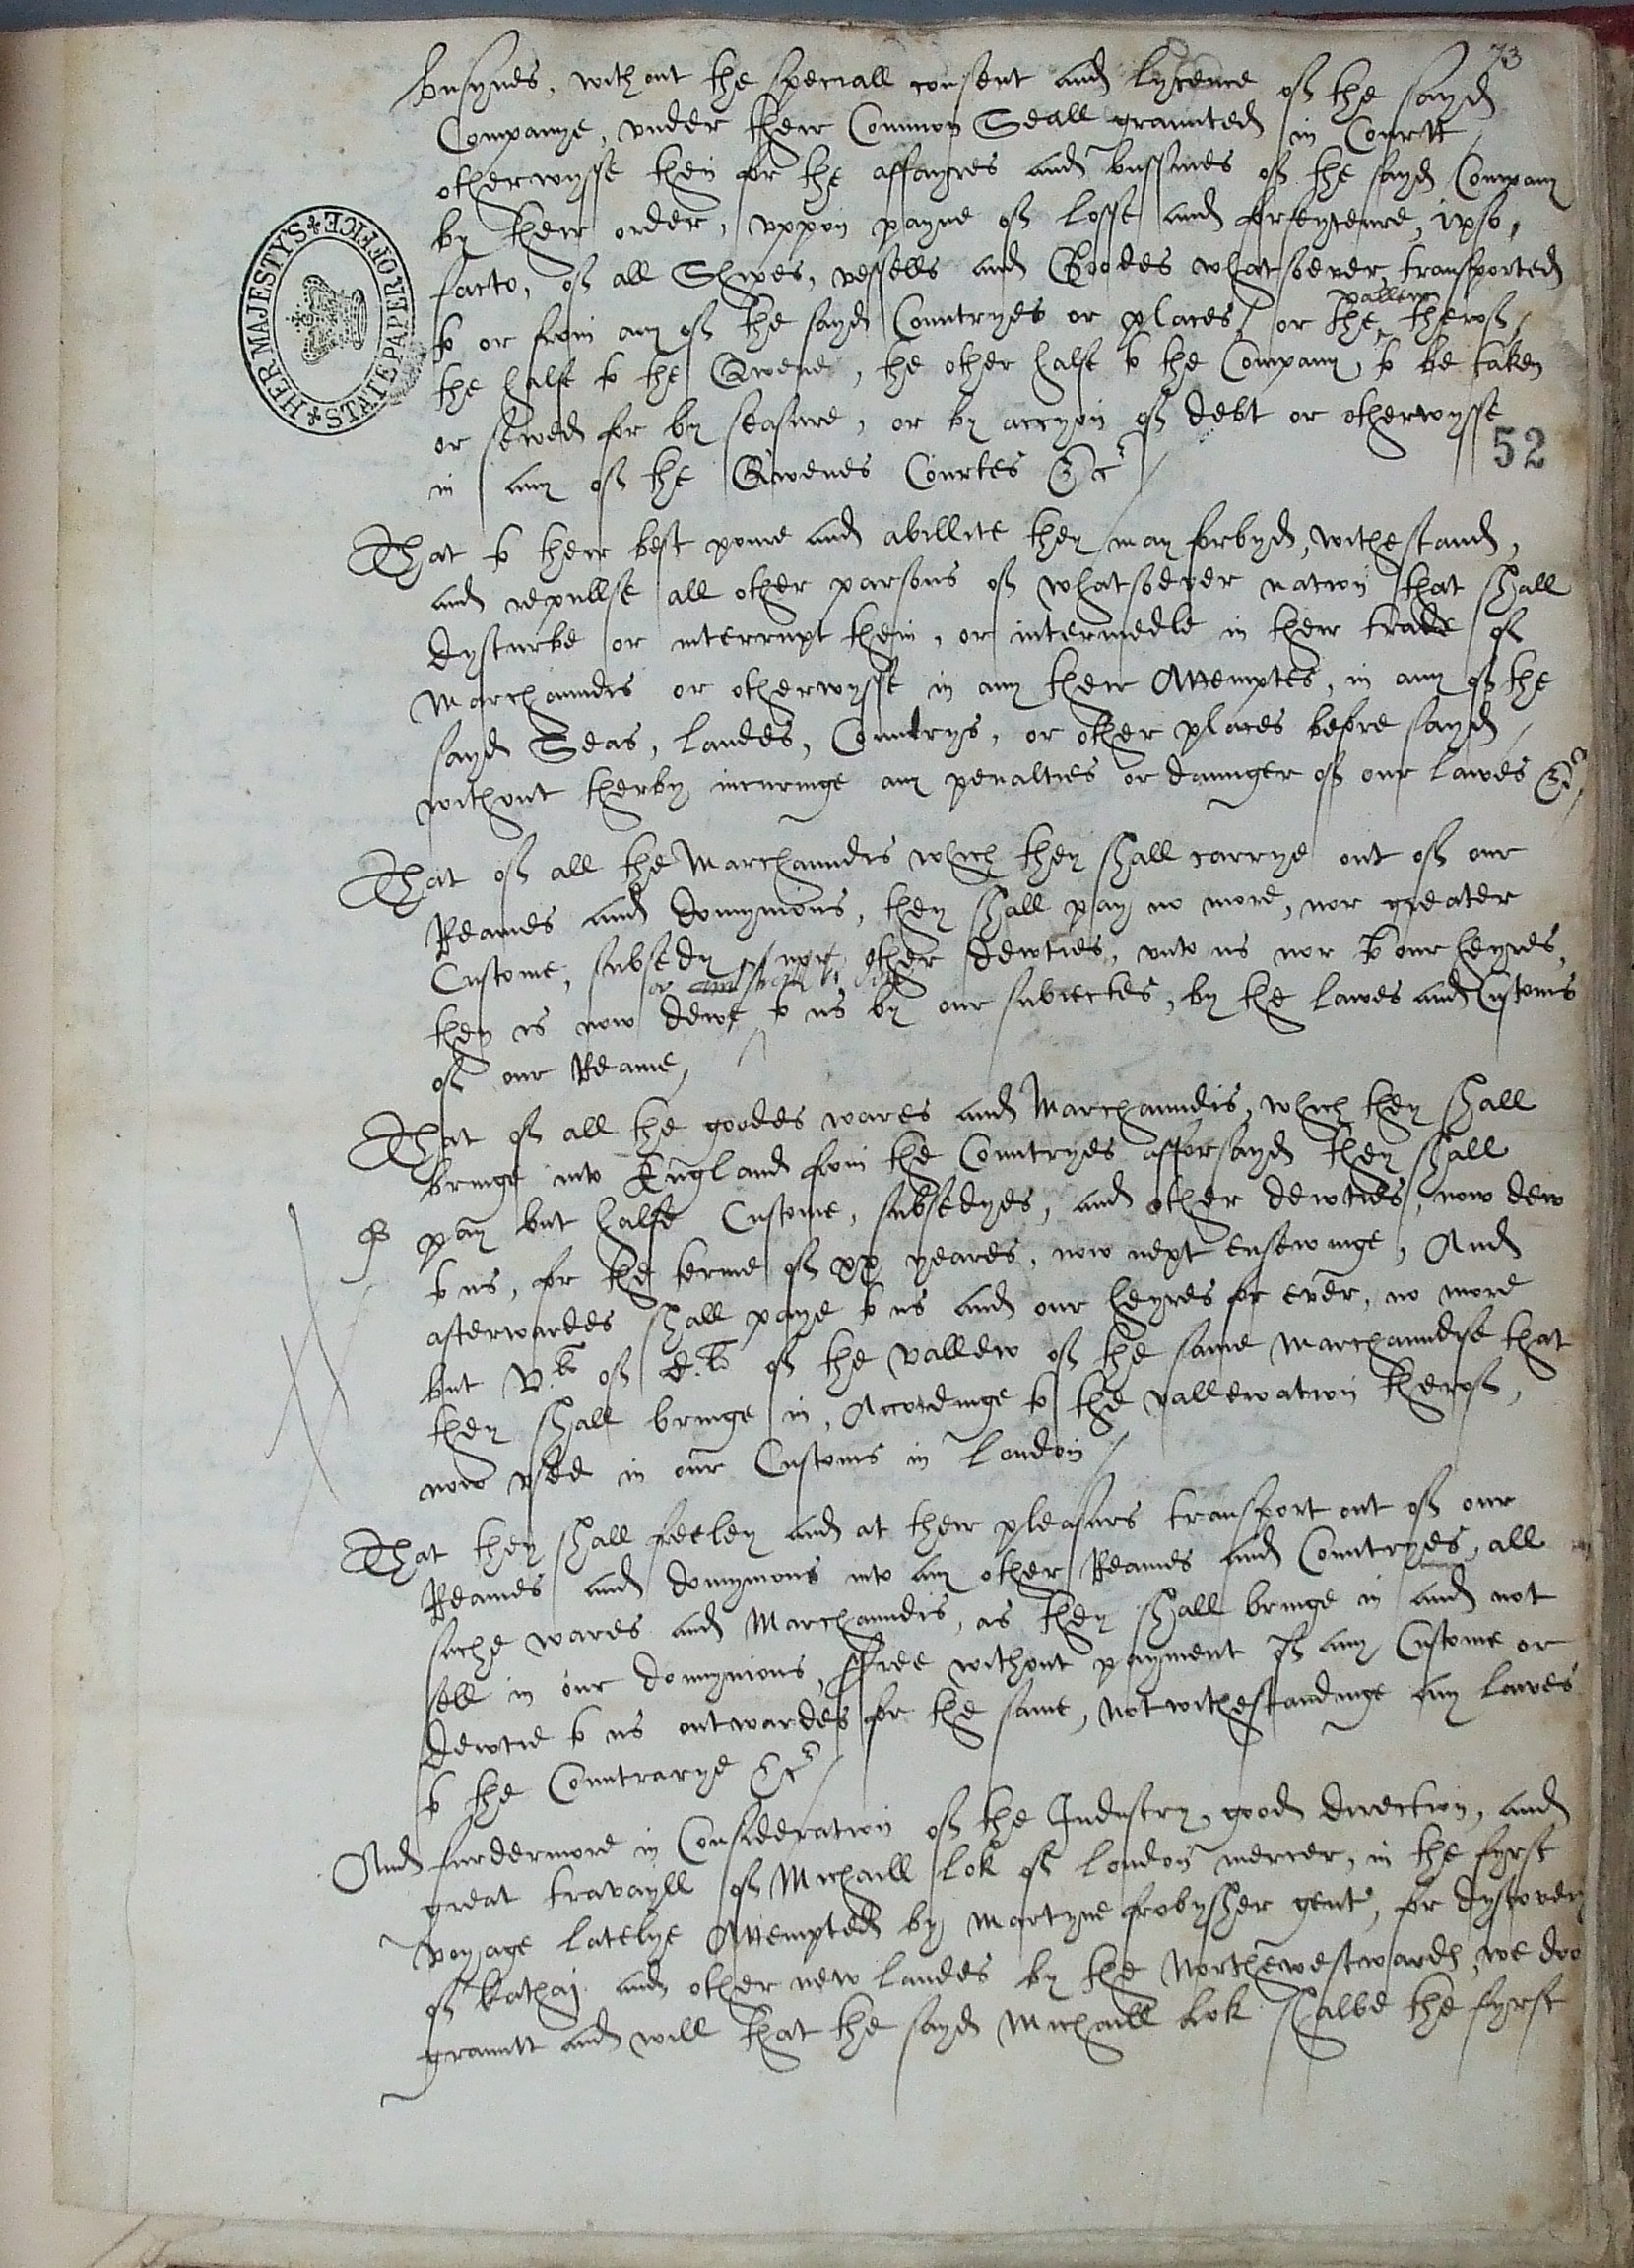 73
busynes, without the speciall consent and lycence of the sayd
Companye, vnder their Common Seall graunted in Courtt /
otherwysse then for the affayres and bussines of the sayd Company
by their order, vppon payne of losse and forfeyteure, ipso,
facto, of all Shipes, vessells and Goodes whatsoever, transported
vallew
to or from any of the sayd Countryes or places / or the therof,
the halfe to the Qwene, the other halfe to the Company, to be taken
or sewed for by seasure, or by accyon of debt or otherwysse
52
in any of the Qwenes Courtes &c /
That to their best power and abillite they may forbyd, withestand,
and repullse all other parsons of whatsoever nation that shall
dysturbe or interrupt them, or intermedle in their trade of
marchaundis or otherwysse in any their Attemptes, in any of the
sayd Seas, landes, Countrys, or other places before sayd /
without therby incuringe any penalties or daunger of our lawes &c /
That of all the Marchaundis which they shall carrye out of our
Reames and domynions, they shall pay no more, nor greater
Custome, subsedy / nor other dewties, vnto us nor to our heyres,
or
then is now dewe to us by our subiectes, by the lawes and Customs
of our Reame,
That of all the goodes wares and Marchaundis, which they shall
bringe into England from the Countryes afforsayd they shall
pay but halfe Custome, subsedyes, and other dewties, now dew
to us, for the terme of xx yeares, now next ensewinge, And
afterwardes shall paye to us and our heyres for ever, no more
but v.li of C.li of the vallew of the same marchaundise that
they shall bringe in, Accordinge to the vallewation therof,
now vsed in our Customs in London /
That they shall freeley and at their pleasurs transport out of our
Reames and domynions into any other Reames and Countryes, all
suche wares and Marchaundis, as they shall bringe in and not
sell in our domynions, ffree without payment of any Custome or
dewtie to us outwardes for the same, notwithestandinge any lawes
to the Countrarye &c /
And furdermore in Consideration of the Industry, good direction, and
great travayll of Michaell Lok of London mercer, in the fyrst
voyage latelye Attempted by Martyne frobysher gent, for dyscovery
of Kathay and other new landes by the Northewestward, we doo
grauntt and will that the sayd Michaell Lok shalbe the fyrst
HER MAJESTY'S STATE PAPER OFFICE